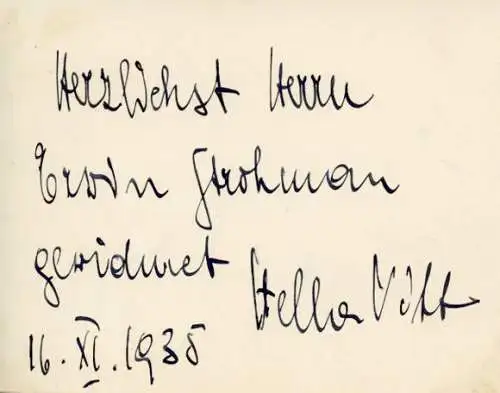 Herzlichst Herrn
Erwin Strohman
gewidmet
Stella
16. XI. 1935